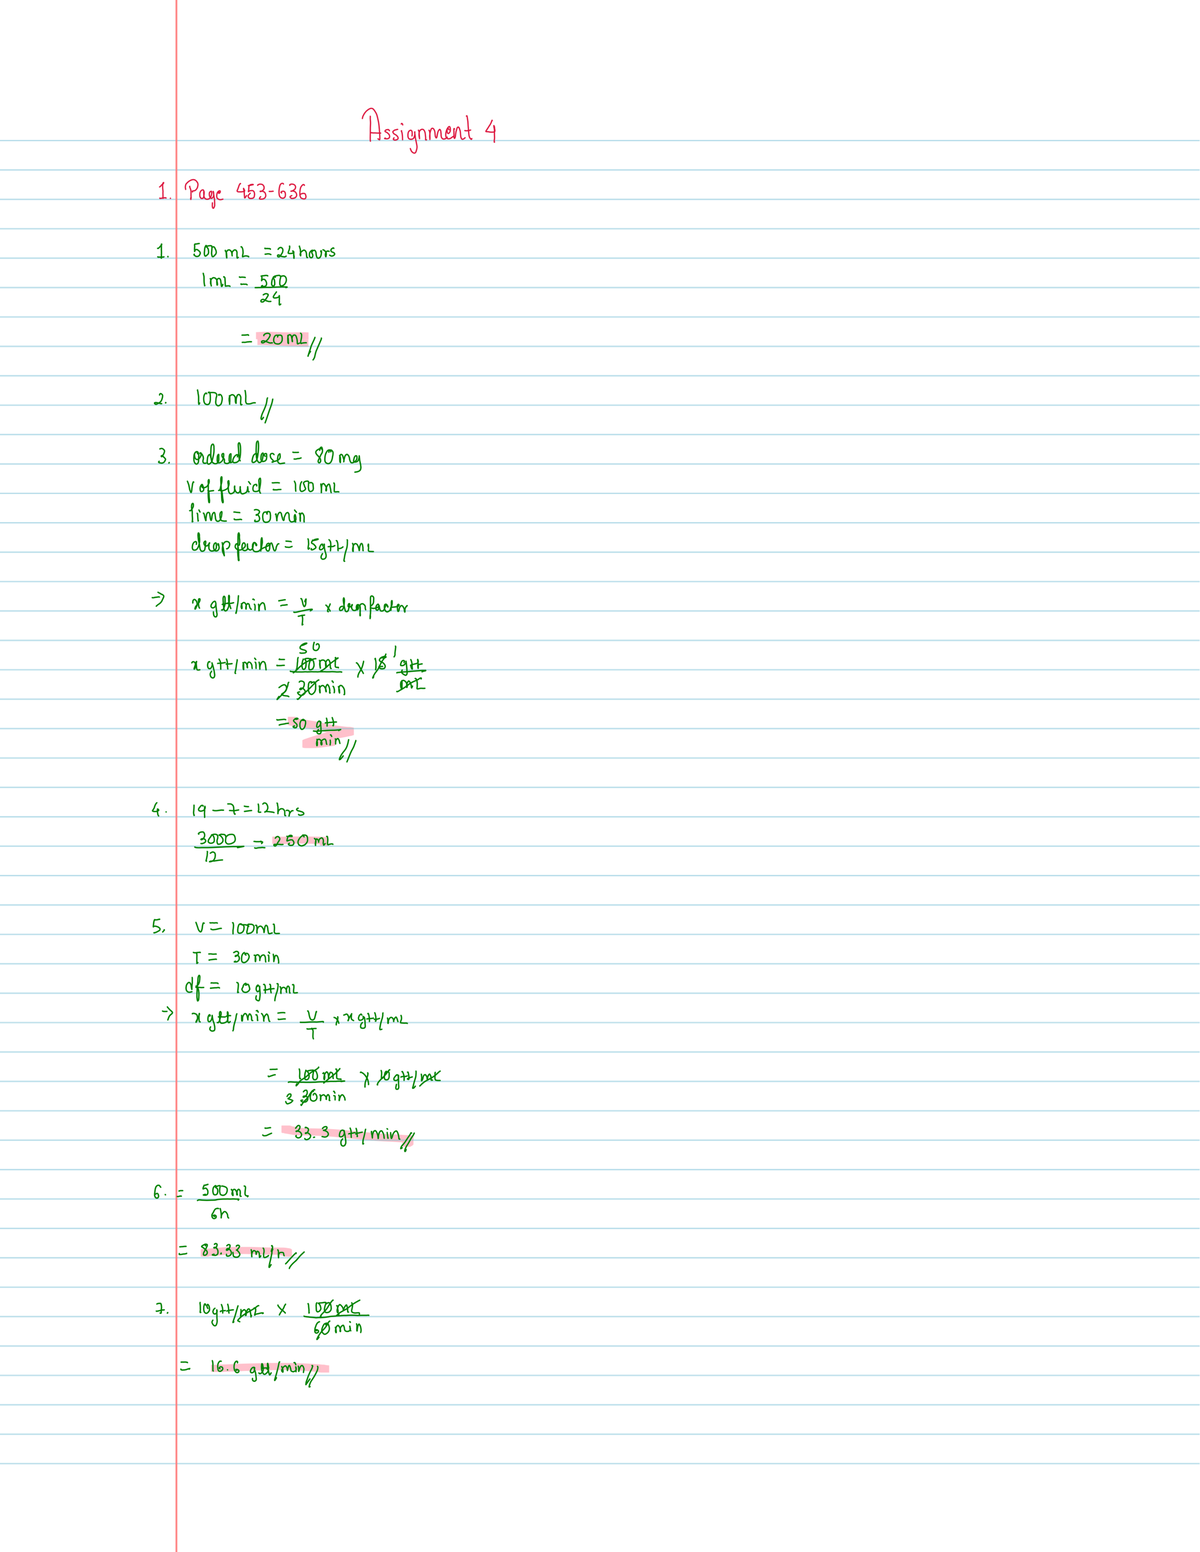 Assignment 4
1. Page 453-636
1. 500 mL = 24 hours
1 mL = 500
24
= 20 mL //
2. 100 mL //
3. ordered dose = 80 mg
V of fluid = 100 mL
time = 30 min
drop factor = 15 gtt/mL
→ x gtt/min = V/T x drop factor
50 1
x gtt/min = 100 mL x 15 gtt
2 30 min mL
= 50 gtt
min //
4. 19 - 7 = 12 hrs
3000 = 250 mL
12
5. V = 100 mL
T = 30 min
df = 10 gtt/mL
→ x gtt/min = V/T x x gtt/mL
= 100 mL x 10 gtt/mL
3 30 min
= 33.3 gtt/min //
6. = 500 mL
6h
= 83.33 mL/h //
7. 10 gtt/mL x 100 mL
60 min
= 16.6 gtt/min //